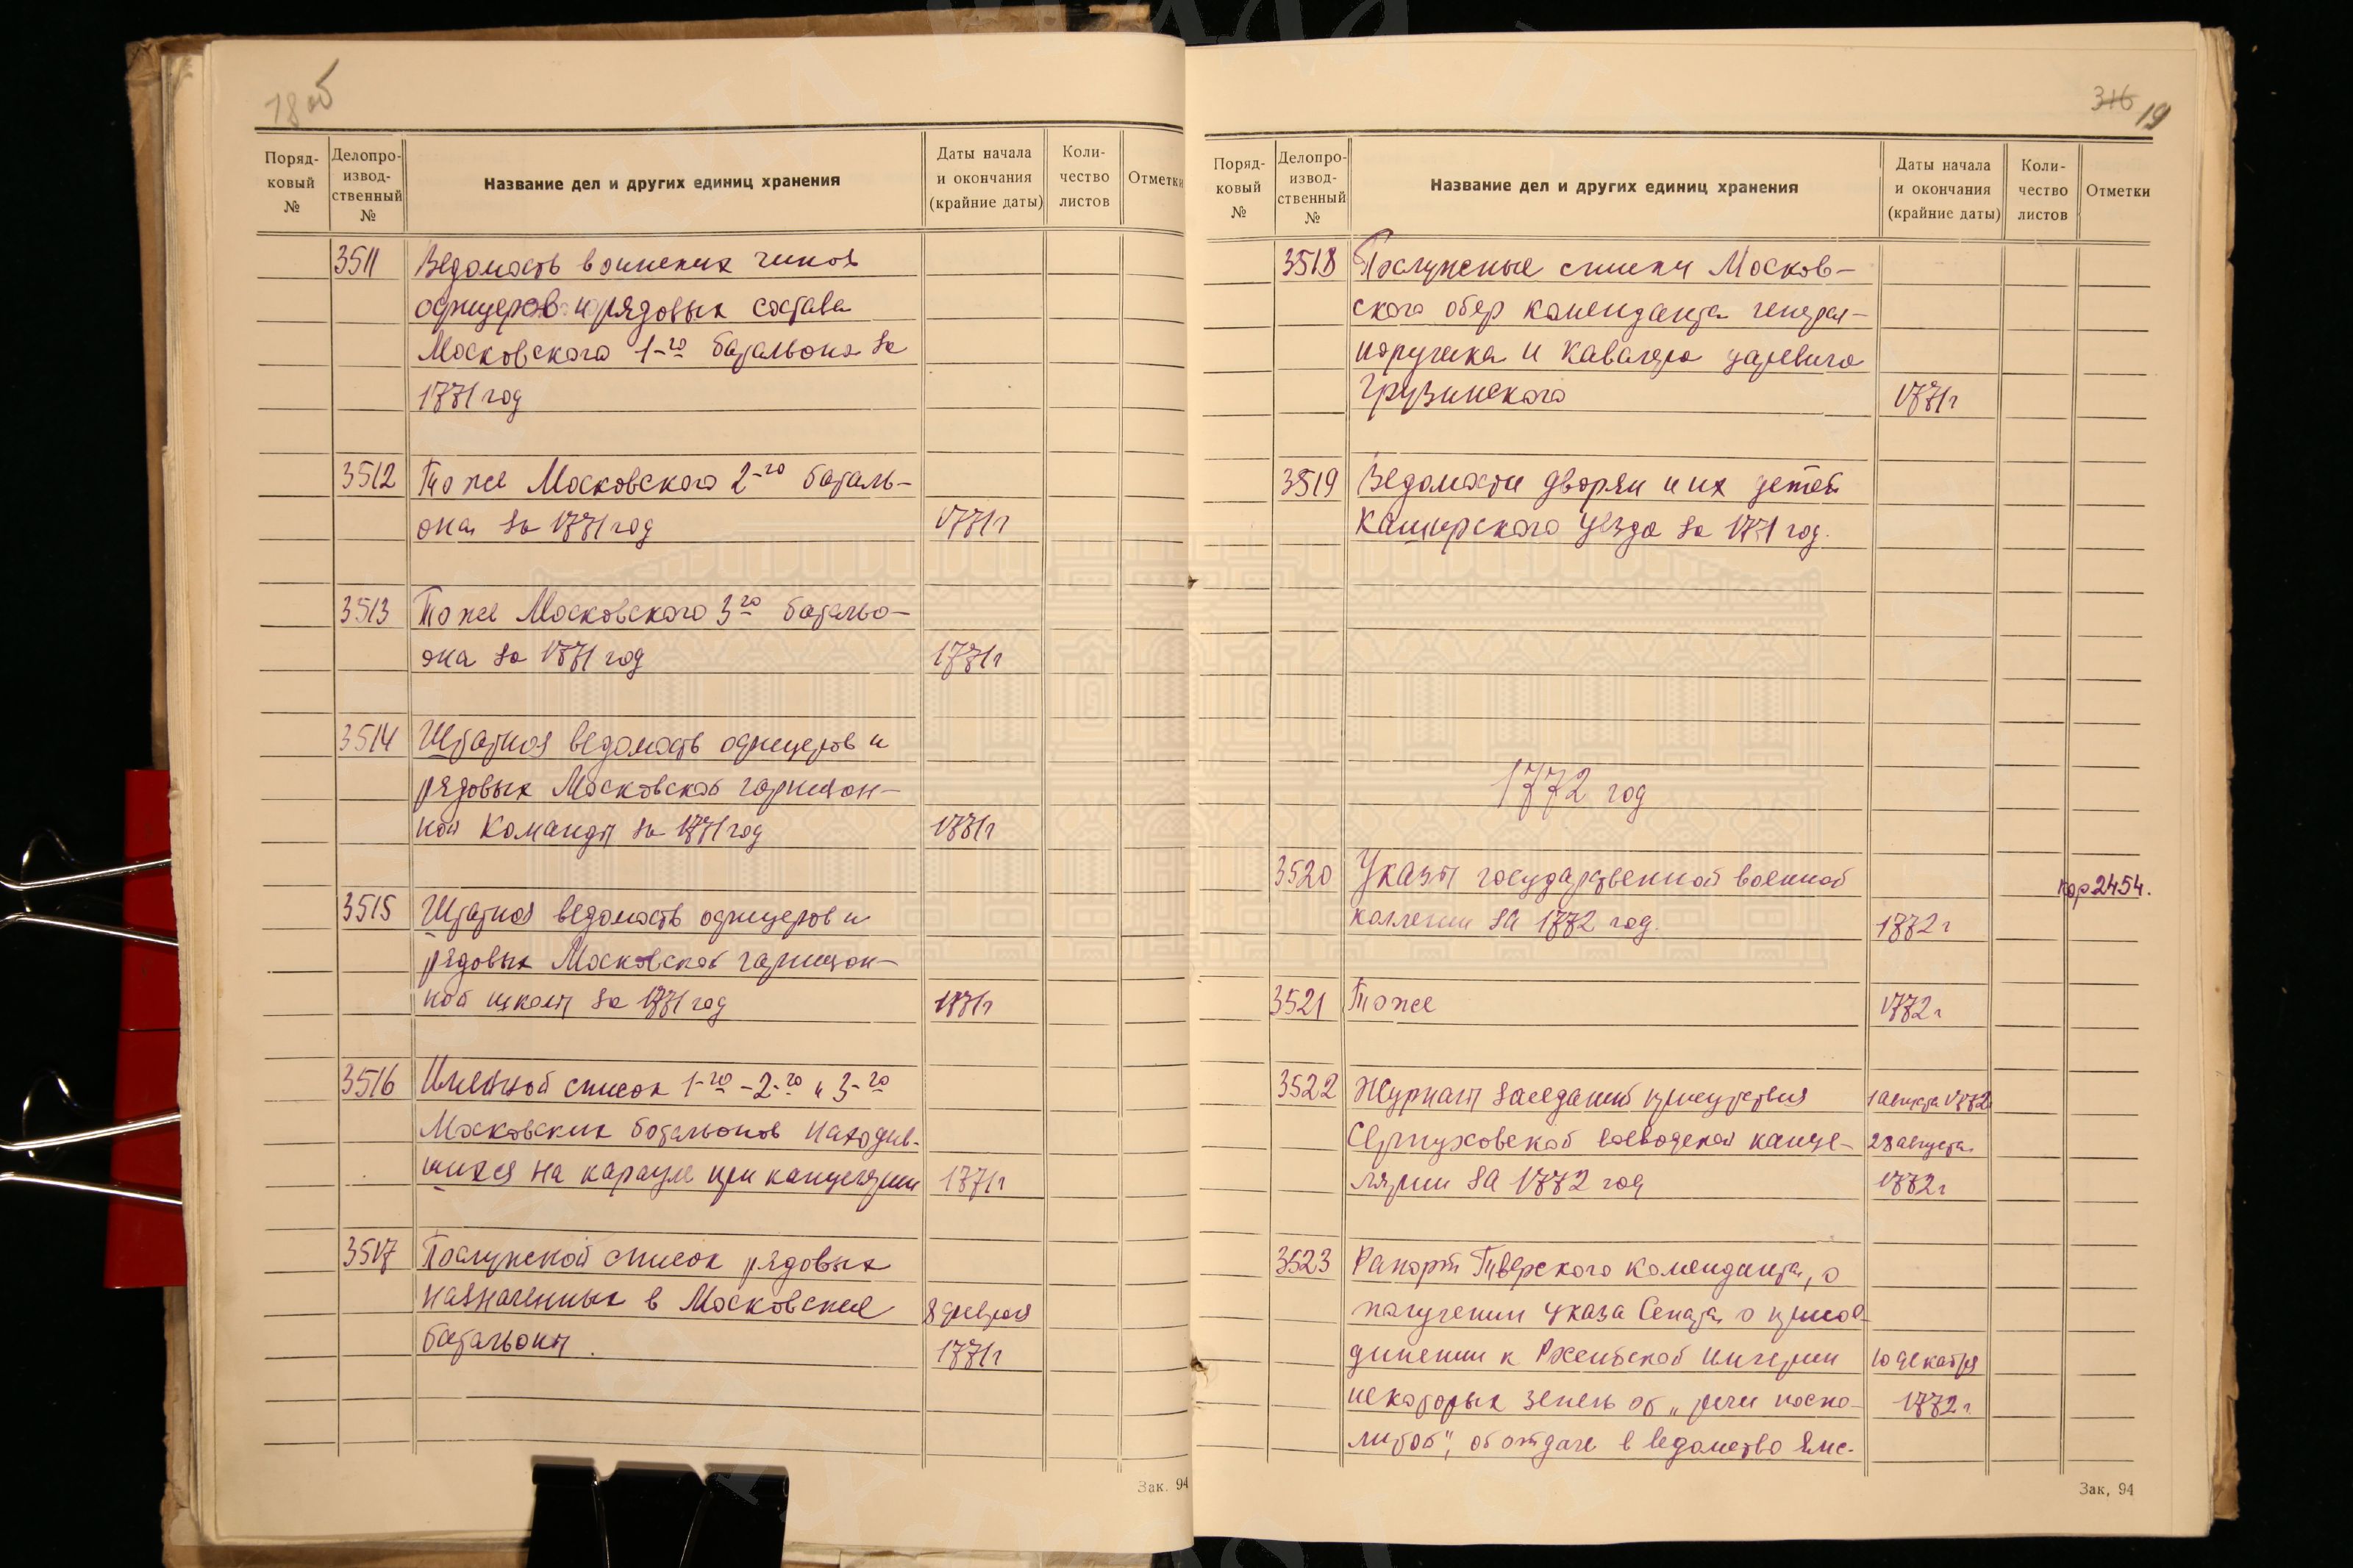 18об
Поряд-
ковый
№
Делопро-
извод-
ственный
№
Название дел и других единиц хранения
Даты начала
и окончания
(крайние даты)
Коли-
чество
листов
Отметки
3511 Ведомость воинских чинов
офицеров и рядовых состава
Московского 1-го батальона за
1771 год
3512 То же Московского 2-го баталь-
она за 1771 год 1771г
3513 То же Московского 3го батальо-
она за 1771 год 1771г
3514 Штатная ведомость офицеров и
рядовых Московской гарнизон-
ной команды за 1771 год 1771г
3515 Штатная ведомость офицеров и
рядовых Московской гарнизон-
ной школы за 1771 год 1771г
3516 Именной список 1-го - 2-го и 3-го
Московских батальонов находив-
шихся на карауле при канцелярии 1771г
3517 Послужной список рядовых
назначенных в Московские 8 февраля
батальоны. 1771г
Зак. 94
316 19
Поряд-
ковый
№
Делопро-
извод-
ственный
№
Название дел и других единиц хранения
Даты начала
и окончания
(крайние даты)
Коли-
чество
листов
Отметки
3518 Послужные списки Москов-
ского обер коменданта генерал-
поручика и кавалера царевича
Грузинского 1771г
3519 Ведомости дворян и их детей
Каширского уезда за 1771 год.
1772 год
3520 Указы государственной военной кор 2454.
коллегии за 1772 год. 1772г
3521 То же 1772г
3522 Журналы заседаний присутствия 1 августа 1772
Серпуховской воеводской канце- 28 августа
лярии за 1772 год 1772г
3523 Рапорт Тверского коменданта, о
получении указа Сената о присое-
динении к Российской империи 10 декабря
некоторых земель от „речи поспо- 1772г
литой", об отдаче в ведомство
Зак, 94